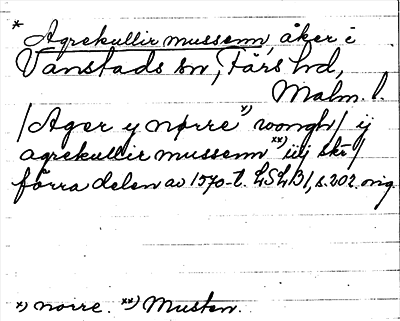 * Agrekullir mussenn, åker i
Vanstads sn, Färs hd,
Malm. l.
/Ager y nørre x) wongh/ ij
agrekullir mussenn xx) iiij skr/
förra delen av 1570-t. LSLB1, s. 202. orig.
x) norre. xx) Musten.